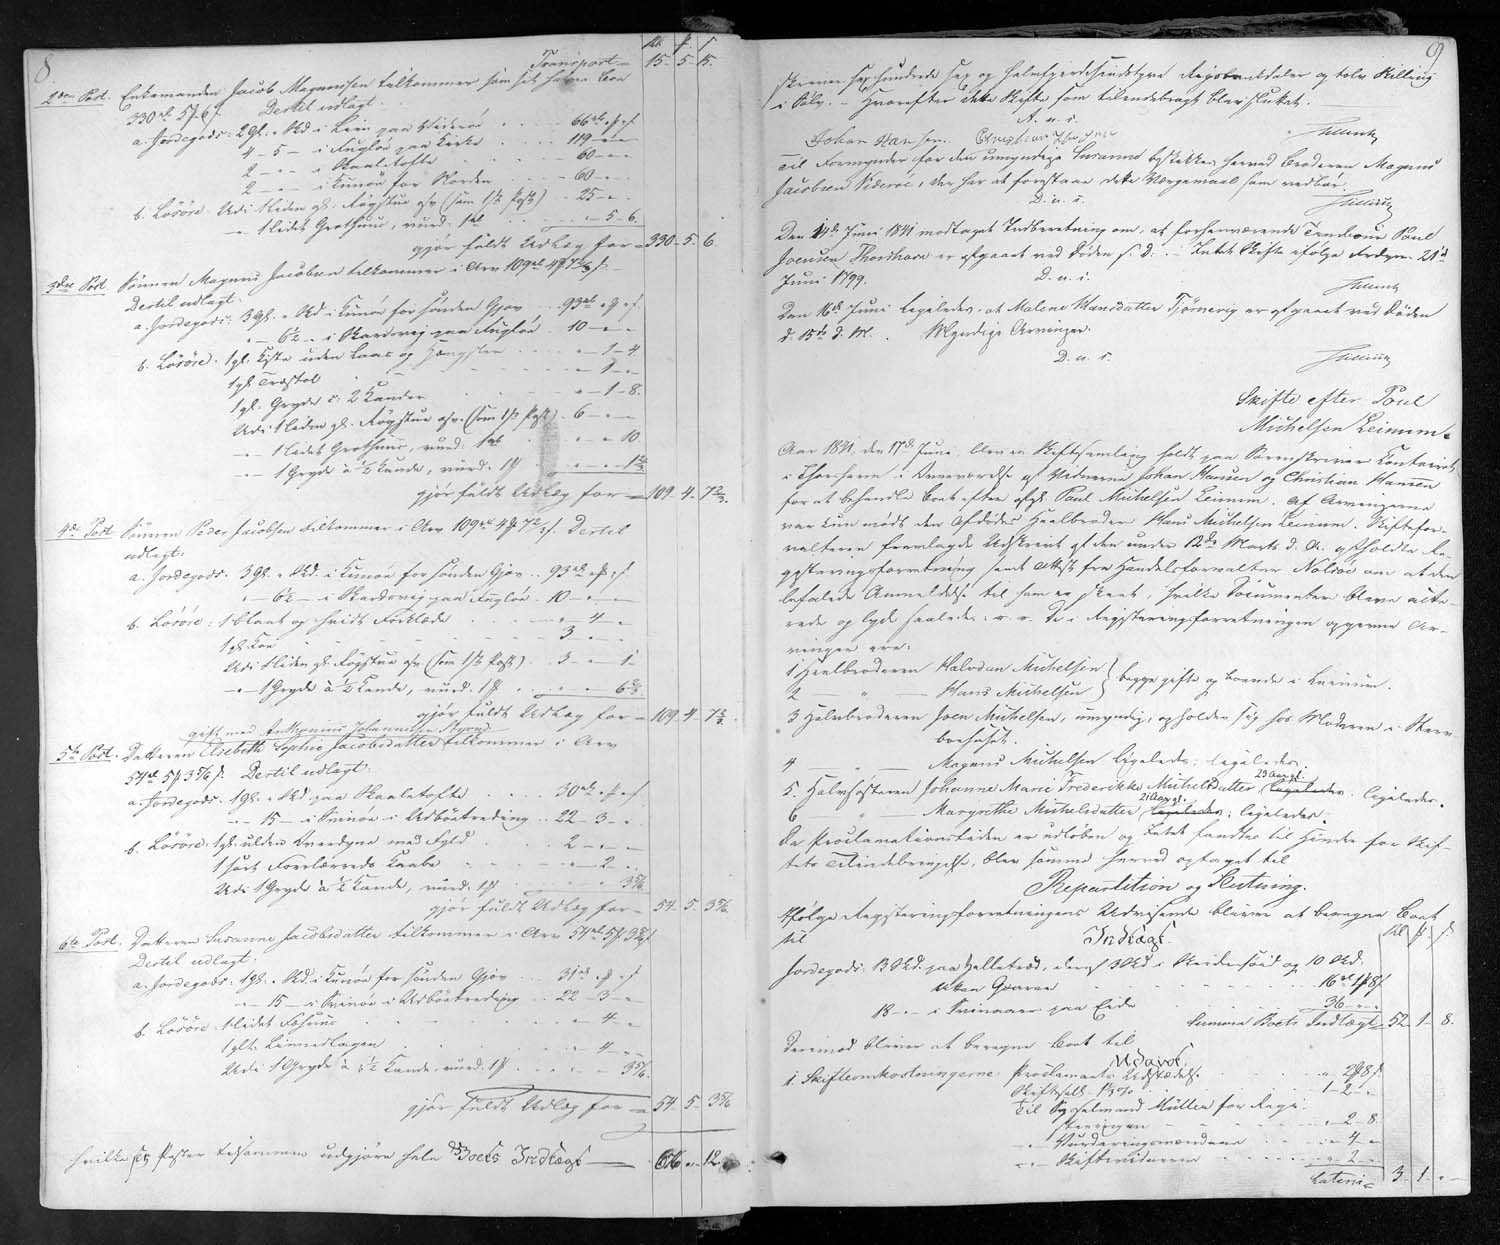 8.
Rbd. f. s.
Transport 15 - 5 - 15.
2den Post. Enkemanden Jacob Magnussen tilkommer som sit halve Boe
330 rd 5 f 6 s. Dertil udlagt.
a. Jordegods: 2 gl. " Skd i Leim paa Viderøe 66 rd " f " s.
4 - 5 - i Fugløe paa Kirke 119 - " - "
2 - " - i Skaaletofte 60 - " - "
2 - " - i Kunøe for Norden 60 - " - "
b. Løsøre: Udi 1 liden gl. Røgstue osv (som 1ste Post) 25 - " - "
" 1 lidet Grothuus, vurd. 1 rd " - 5 - 6.
gjør fuldt Udlæg for 330 - 5 - 6.
3die Post. Sønnen Magnus Jacobsen tilkommer i Arv 109 rd 4 f 7 2/3 s.
Dertil udlagt.
a. Jordegods: 3 gl. " Skd i Kunøe for sønden Gjov 93 rd " f " s.
" - 6 1/2 - i Skardsvig paa Fugløe 10 - " - "
b. Løsøre: 1 gl. Kiste uden Laas og Hængsler " - 1 - 4.
1 gl. Træstol " - 1 - "
1 gl. Gryde à 2 Kander " - 1 - 8.
Udi 1 liden gl. Røgstue osv. (som 1ste Post) 6 - " - "
" - 1 lidet Grothuus, vurd. 1 rd " - " - 10
" - 1 Gryde à 1/2 Kande, vurd. 1 f " - " - 1 2/3
gjør fuldt Udlæg for 109 - 4 - 7 2/3.
4de Post. Sønnen Peder Jacobsen tilkommer i Arv 109 rd 4 f 7 2/3 s. Dertil
udlagt.
a. Jordegods. 3 gl. " Skd. i Kunøe for sønden Gjov 93 rd " f " s.
" - 6 1/2 - i Skardsvig paa Fugløe 10 - " - "
b. Løsøre: 1 blaat og hvidt Forklæde " - 4 - "
1 gl. Koe 3 - " - "
Udi 1 liden gl. Røgstue osv (som 1ste Post) 3 - " - 1
" - 1 Gryde à 1/2 Kande, vurd. 1 f " - " - 6 2/3
gjør fuldt Udlæg for 109 - 4 - 7 2/3
gift med Anthonius Johannesen
5te Post. Datteren Elsebeth Sophie Jacobsdatter tilkommer i Arv
54 rd 5 f 3 5/6 s. Dertil udlagt.
a. Jordegods: 1 gl. " Skd paa Skaaletofte 30 rd " f " s.
" - 15 - i Svinøe i Udbøetreding 22 - 3 - "
b. Løsøre: 1 gl. ulden Overdyne med Fyld 2 - " - "
1 sort Foerlærreds Kaabe " - 2 - "
Udi 1 Gryde à 1/2 Kande, vurd. 1 f " - " - 3 5/6
gjør fuldt Udlæg for 54 - 5 - 3 5/6
6te Post. Datteren Susanne Jacobsdatter tilkommer i Arv 54 rd 5 f 3 5/6 s
Dertil udlagt.
a. Jordegods: 1 gl. " Skd i Kunøe for sønden Gjov 31 rd " f " s
" - 15 - i Svinøe i Udbøetreding 22 - 3 - "
b. Løsøre: 1 lidet Fæhuus " - 4 - "
1 glt. Linnedlagen " - 4 - "
Udi 1 Gryde à 1/2 Kande, vurd. 1 f " - " - 3 5/6.
gjør fuldt Udlæg for 54 - 5 - 3 5/6
hvilke sex Poster tilsammen udgjøre hele Boets Indtægt 676 - " - 12.
9
skriver sex hundrede sex og halvfjerdesindstyve Rigsbankdaler og tolv Skilling
i Sølv. - Hvorefter dette Skifte som tilendebragt blev sluttet.
D. u. s.
Johan Hansen. Christian Hansen
Til Formynder for den umyndige Susanne beskikkes herved Broderen Magnus
Jacobsen Viderøe, der har at forestaae dette Værgemaal som vedbør.
D. u. s.
Den 14de Juni 1841 modtaget Indberetning om, at forhenværende Tambour Poul
Joensen Thorshavn er afgaaet ved Døden s. D. - Intet Skifte ifølge Ordre 21de
Juni 1799.
D. u. s.
Den 16de Juni ligeledes, at Malene Hansdatter Tjørnevig er afgaaet ved Døden
d. 15de d. M. Myndige Arvinger.
D. u. s.
Skifte efter Poul
Michelsen Leinum.
Aar 1841, den 17de Juni, blev en Skiftesamling holdt paa Sorenskriver Contoiret
i Thorshavn i Overværelse af Vidnerne Johan Hansen og Christian Hansen
for at behandle Boet efter afgl. Poul Michelsen Leinum. Af Arvingerne
var kun mødt den Afdødes Heelbroder Hans Michelsen Leinum. Skiftefor-
valteren fremlagde Udskrivt af den under 12te Marts d. A. afholdte Re-
gistreringsforretning samt Attest fra Handelsforvalter Nolsøe om at den
befalede Anmeldelse til ham er skeet, hvilke Documenter bleve acte-
rede og lyde saaledes: v. v. De i Registreringsforretningen opgivne Ar-
vinger ere:
1 Heelbroderen Halvdan Michelsen } begge gifte og boende i Leinum.
2 - " - Hans Michelsen
3 Halvbroderen Joen Michelsen, umyndig, opholder sig hos Moderen i
4 - " - Magnus Michelsen ligeledes, ligeledes
5. Halvsøsteren Johanne Marie Frederikke Michelsdatter 23 Aar gl. ligeledes. ligeledes.
6 - " - Margrethe Michelsdatter 21 Aar gl. ligeledes, ligeledes.
Da Proclamationstiden er udløben og Intet fandtes til Hinder for Skif-
tets Tilendebringelse, blev samme herved optaget til
Repartition og Slutning.
Ifølge Registreringsforretningens Udvisende bliver at beregne Boet
til
Indtægt. Rbd. f. s.
Jordegods: 13 Skd. paa Velbestad, deraf 3 Skd i og 10 Skd.
uden Gaarden 16 rd 1 f 8 s
18 - " - i paa Eide 36 - " - "
Summa Boets Indtægt 52 - 1 - 8.
Derimod bliver at beregne Boet til
Udgivt.
1. Skifteomkostningerne: Proclamaets Udstædelse " 2 f 8 s.
Skiftesall. 1 - 2 - "
Til Sysselmand Müller for Regi-
streringen " - 2 - 8.
" - Vurderingsmændene " - 4 - "
" - Skiftevidnerne " - 2 - "
Lateris 3 - 1 - "